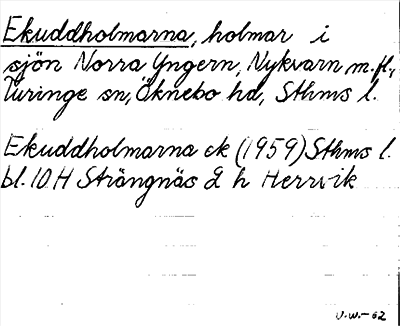 Ekuddholmarna, holmar i
sjön Norra Yngern, Nykvarn m.fl.,
Turinge sn, Öknebo hd, Sthms l.
Ekuddholmarna ek (1959) Sthms l.
bl. 10 H Strängnäs 2 h Herrvik
U.W.-62